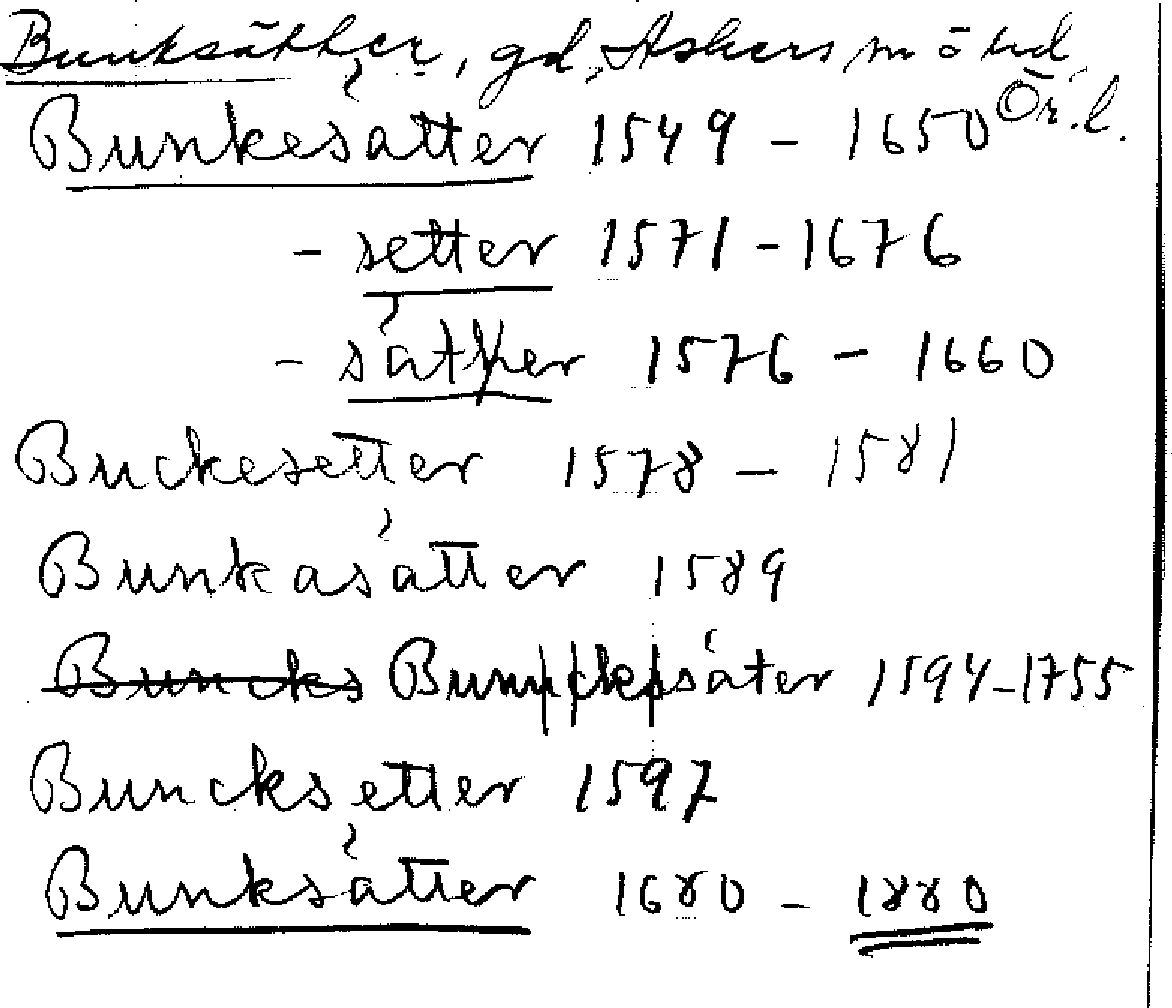 Bunksätter, gd, Askers sn o hd
Ör. l.
Bunkesätter 1549 - 1650
- setter 1571 - 1676
- säther 1576 - 1660
Buckesetter 1578 - 1581
Bunkasätter 1589
Buncks Bunckesäter 1594-1755
Buncksetter 1597
Bunksätter 1680 - 1880